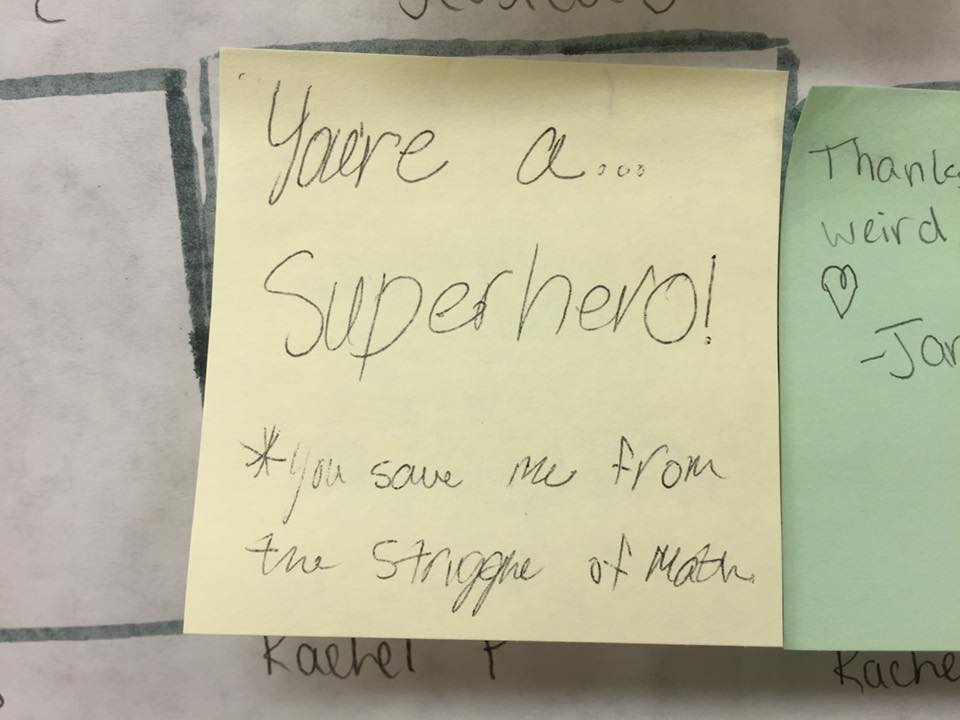 You're a...
Superhero!
*you save me from
the struggle of Math.
Thanks
weird
♡
-Jar
Rachel P
Rache